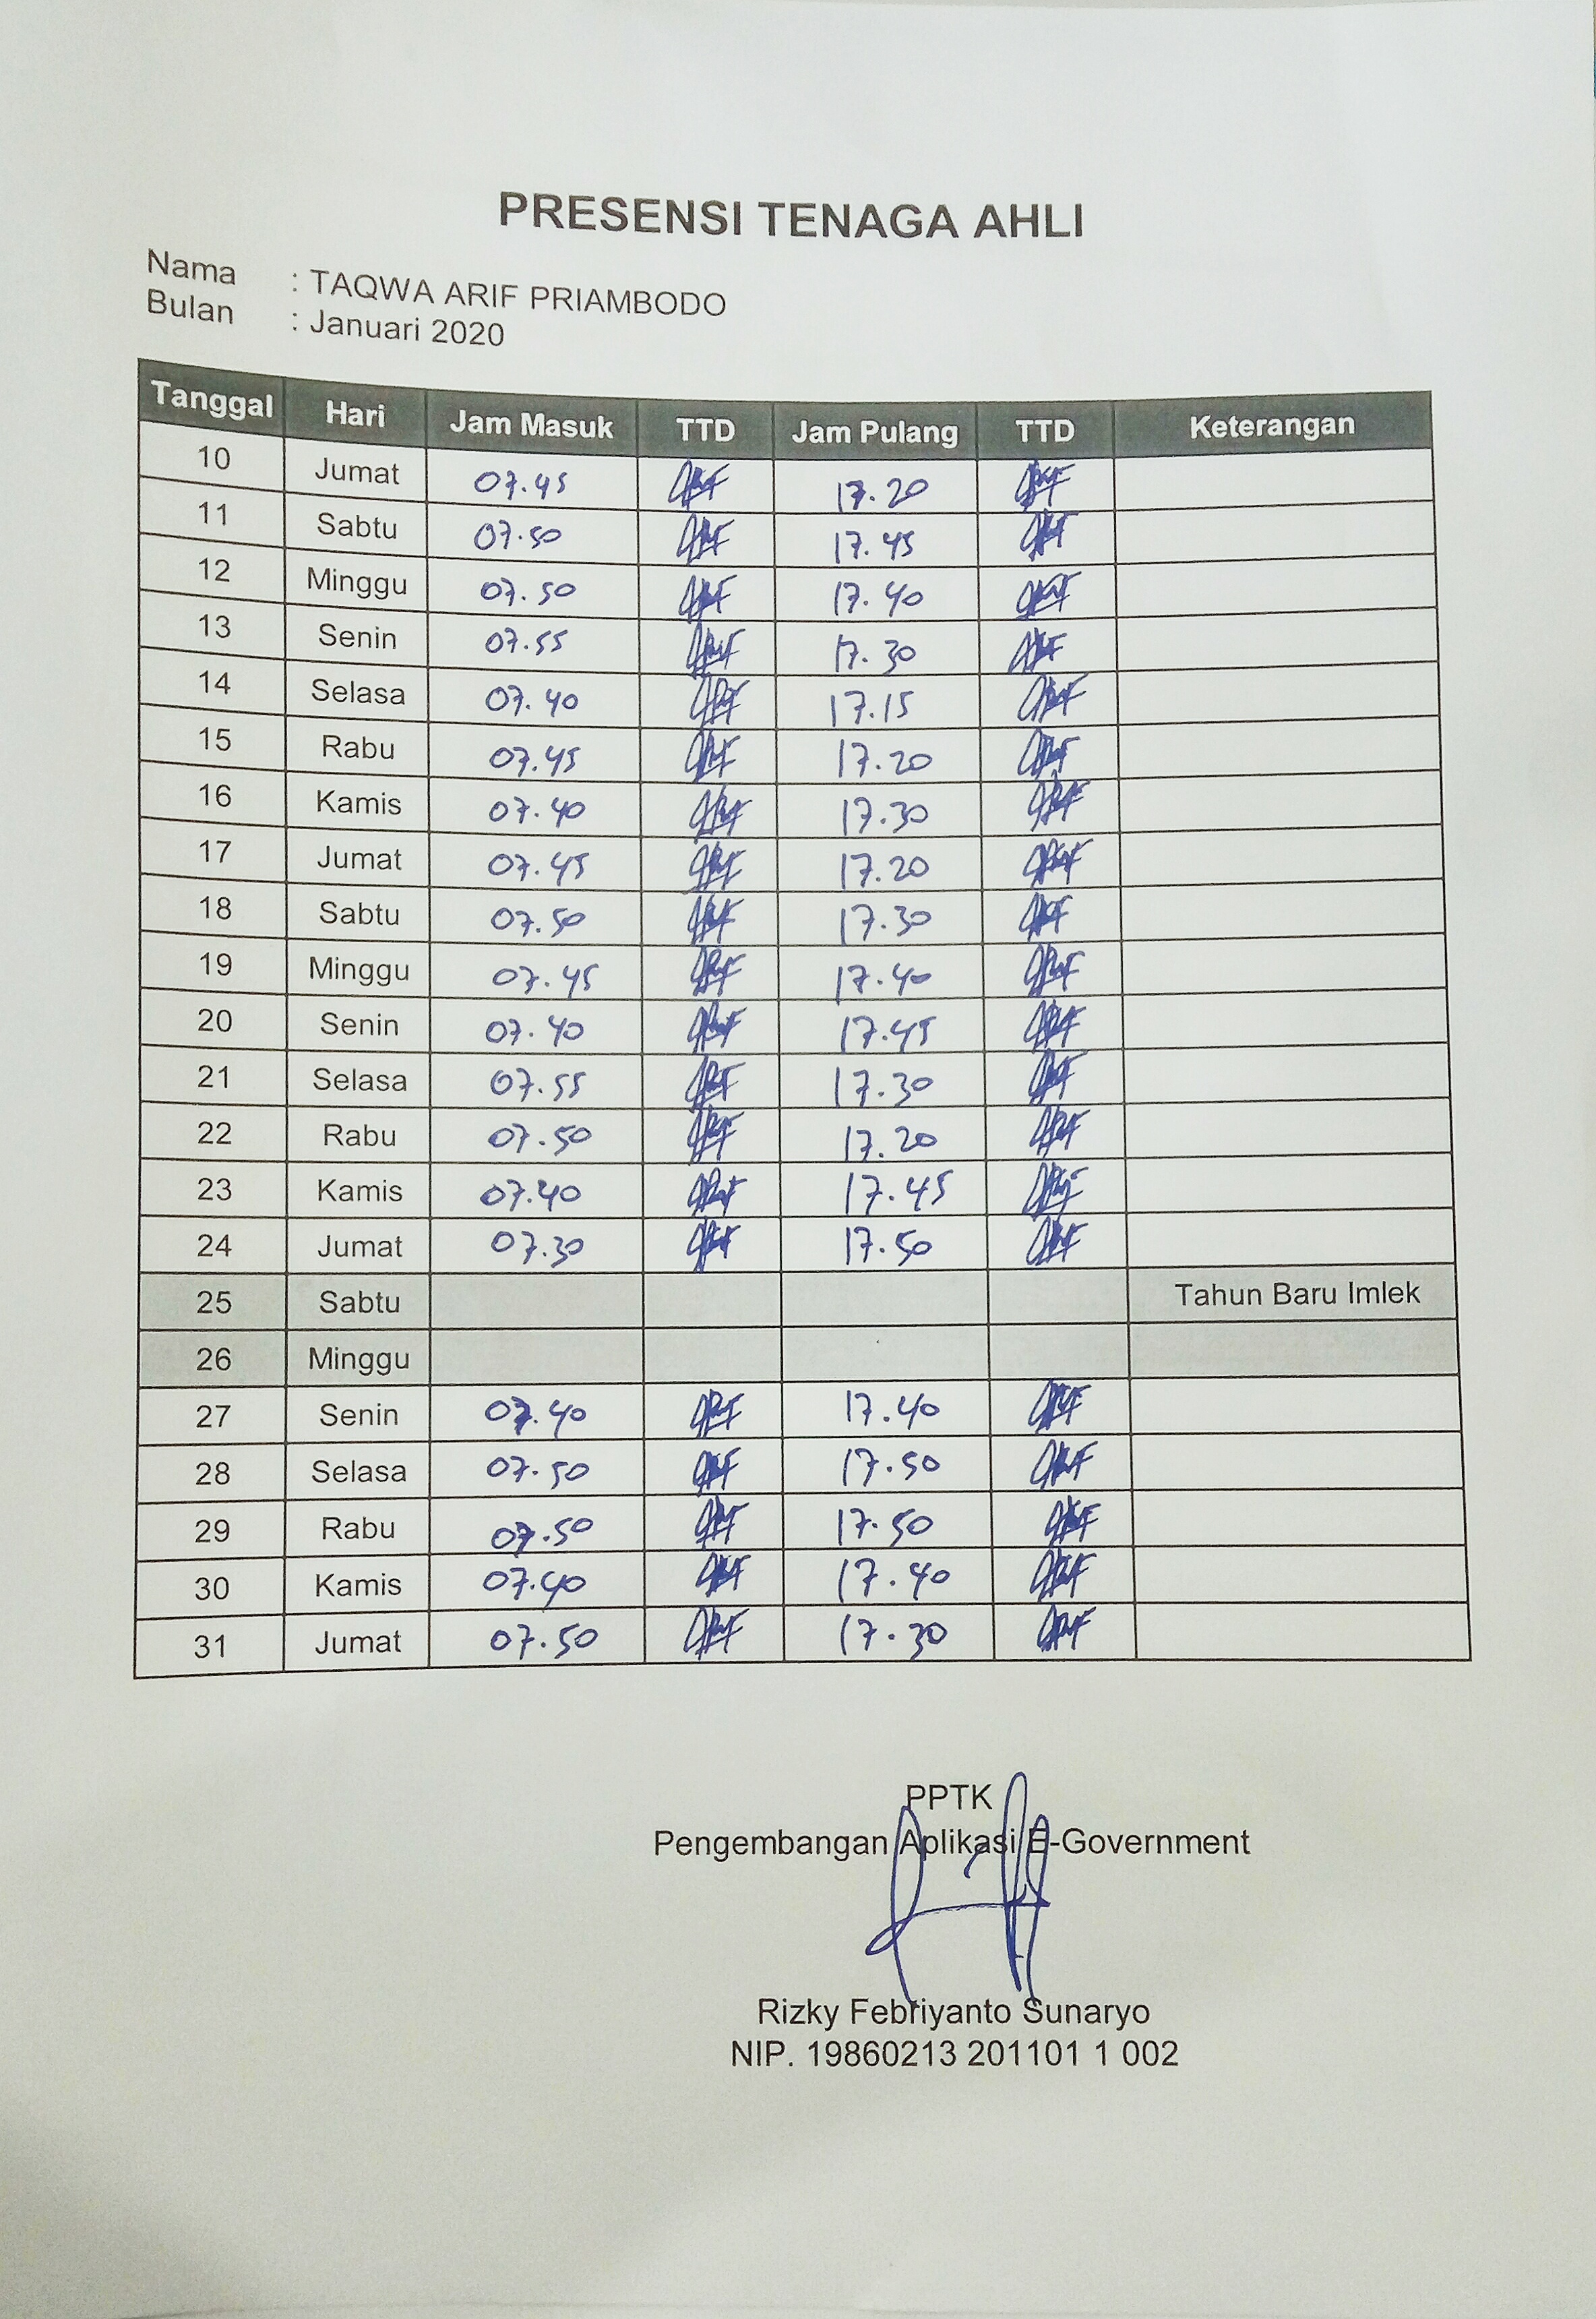 PRESENSI TENAGA AHLI
Nama : TAQWA ARIF PRIAMBODO
Bulan : Januari 2020
Tanggal Hari Jam Masuk TTD Jam Pulang TTD Keterangan
10 Jumat 07.45 17.20
11 Sabtu 07.50 17.45
12 Minggu 07.50 17.40
13 Senin 07.55 17.30
14 Selasa 07.40 17.15
15 Rabu 07.45 17.20
16 Kamis 07.40 17.30
17 Jumat 07.45 17.20
18 Sabtu 07.50 17.30
19 Minggu 07.45 17.40
20 Senin 07.40 17.45
21 Selasa 07.55 17.30
22 Rabu 07.50 17.20
23 Kamis 07.40 17.45
24 Jumat 07.30 17.50
25 Sabtu Tahun Baru Imlek
26 Minggu
27 Senin 07.40 17.40
28 Selasa 07.50 17.50
29 Rabu 07.50 17.50
30 Kamis 07.40 17.40
31 Jumat 07.50 17.30
PPTK
Pengembangan Aplikasi E-Government
Rizky Febriyanto Sunaryo
NIP. 19860213 201101 1 002